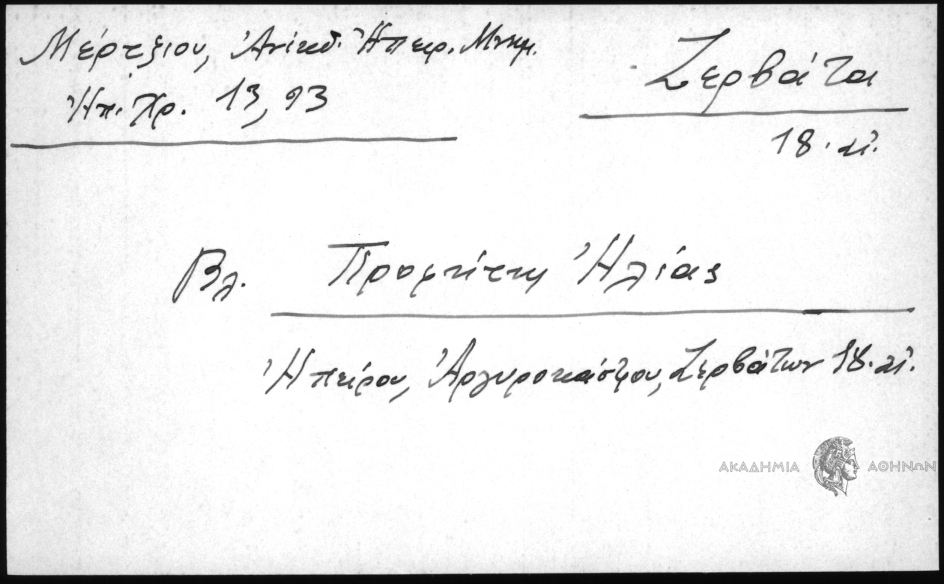 Μέρτζιου, Ἀνέκδ. Ἠπειρ. Μνημ.
Ἠπ. Χρ. 13, 93
Ζερβάτα
18. αἰ.
Βλ. Προφήτης Ἠλίας
Ἠπείρου, Ἀργυροκάστρου, Ζερβάτων 18. αἰ.
ΑΚΑΔΗΜΙΑ ΑΘΗΝΩΝ